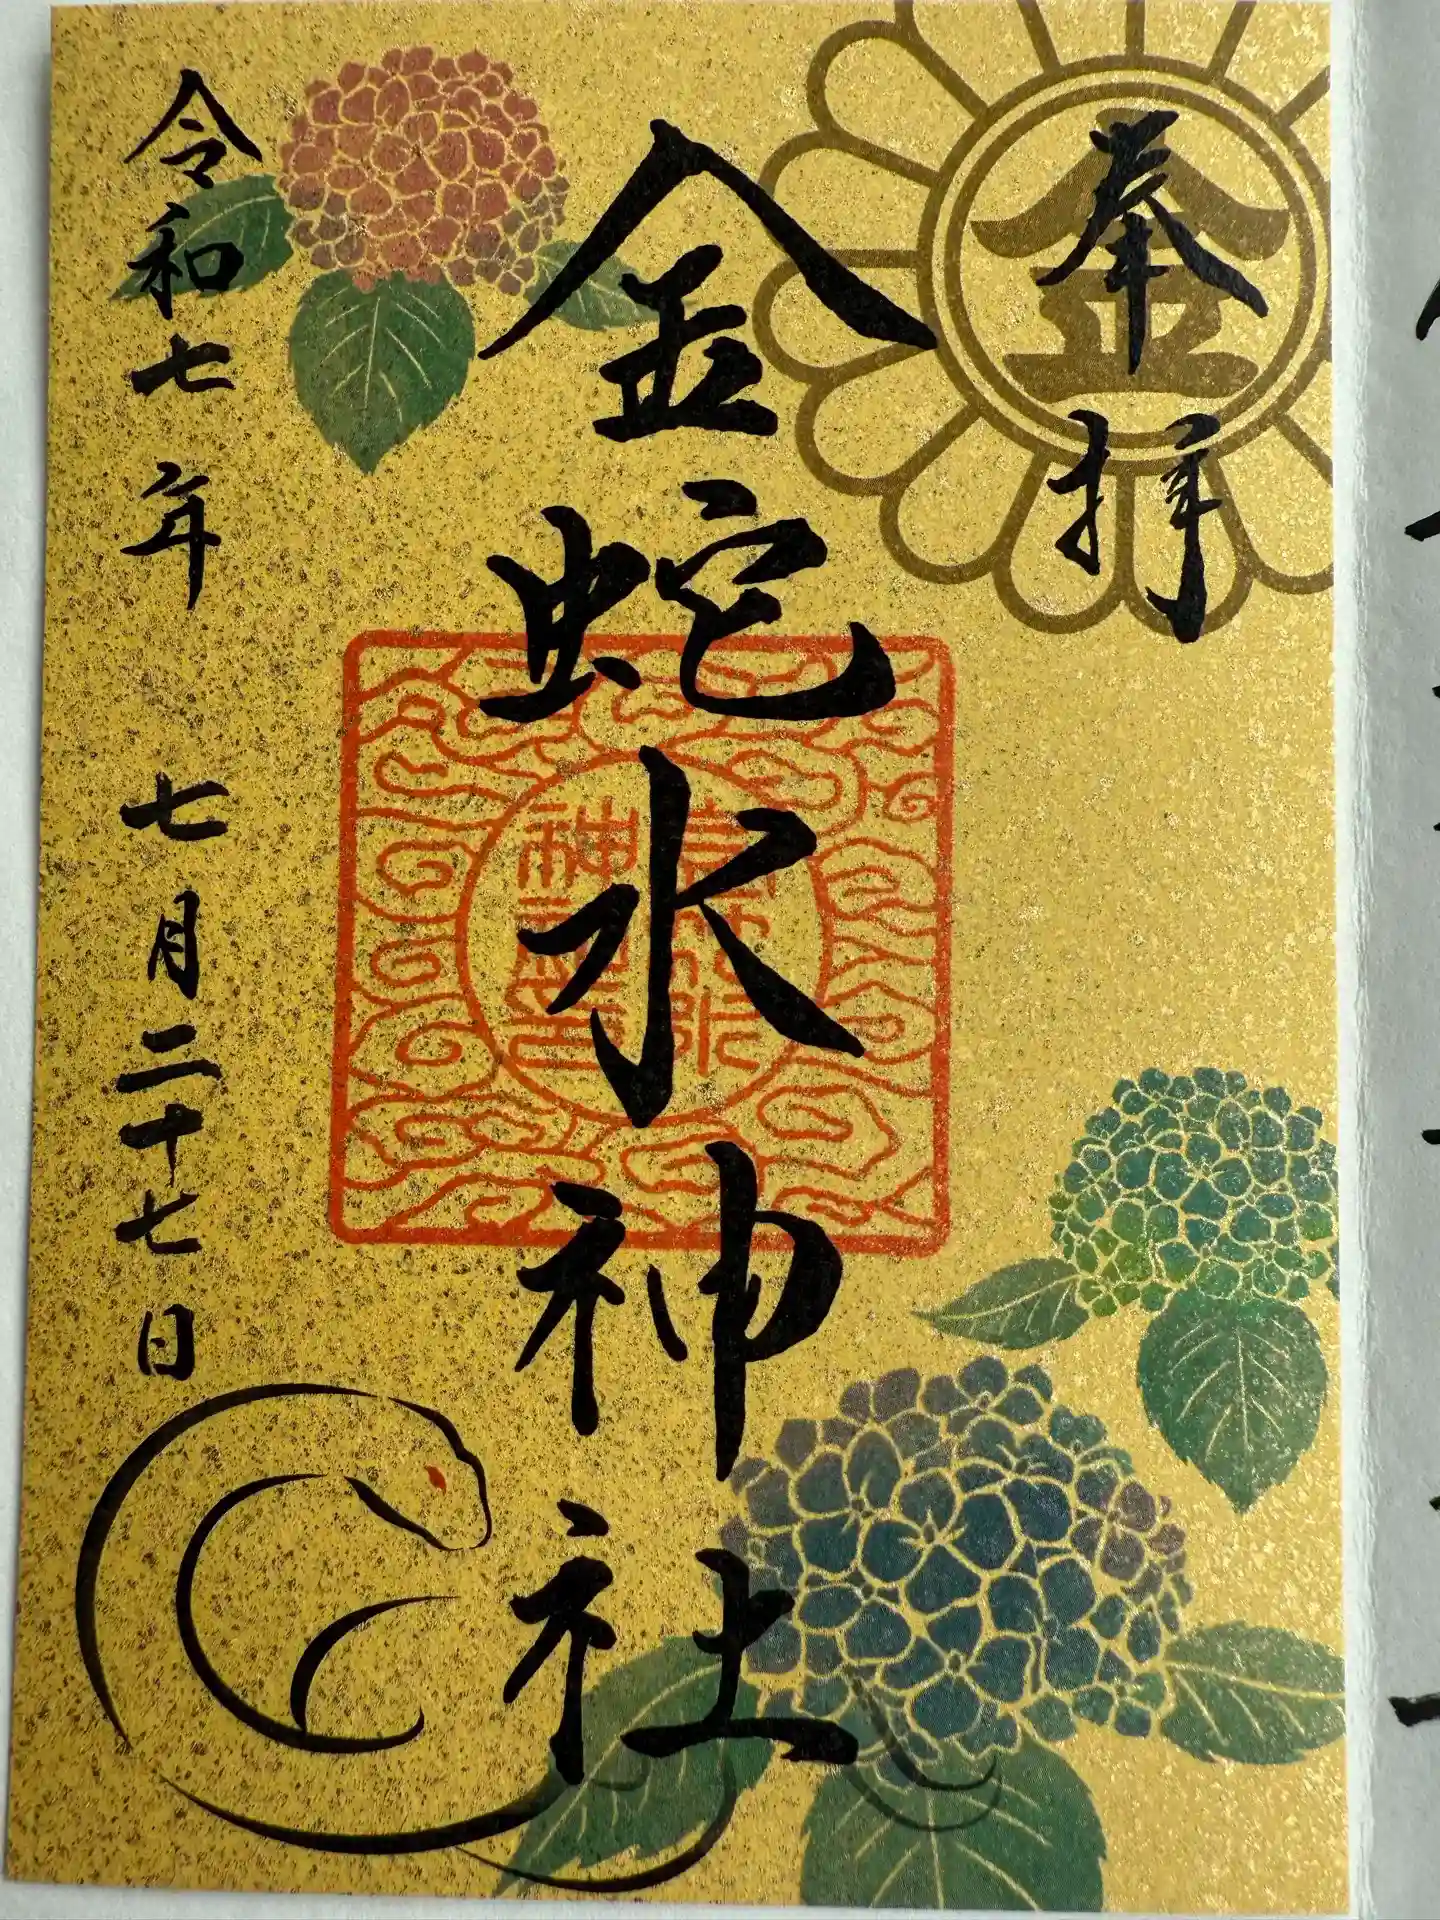 奉拝
金
金蛇水神社
令和七年 七月二十七日